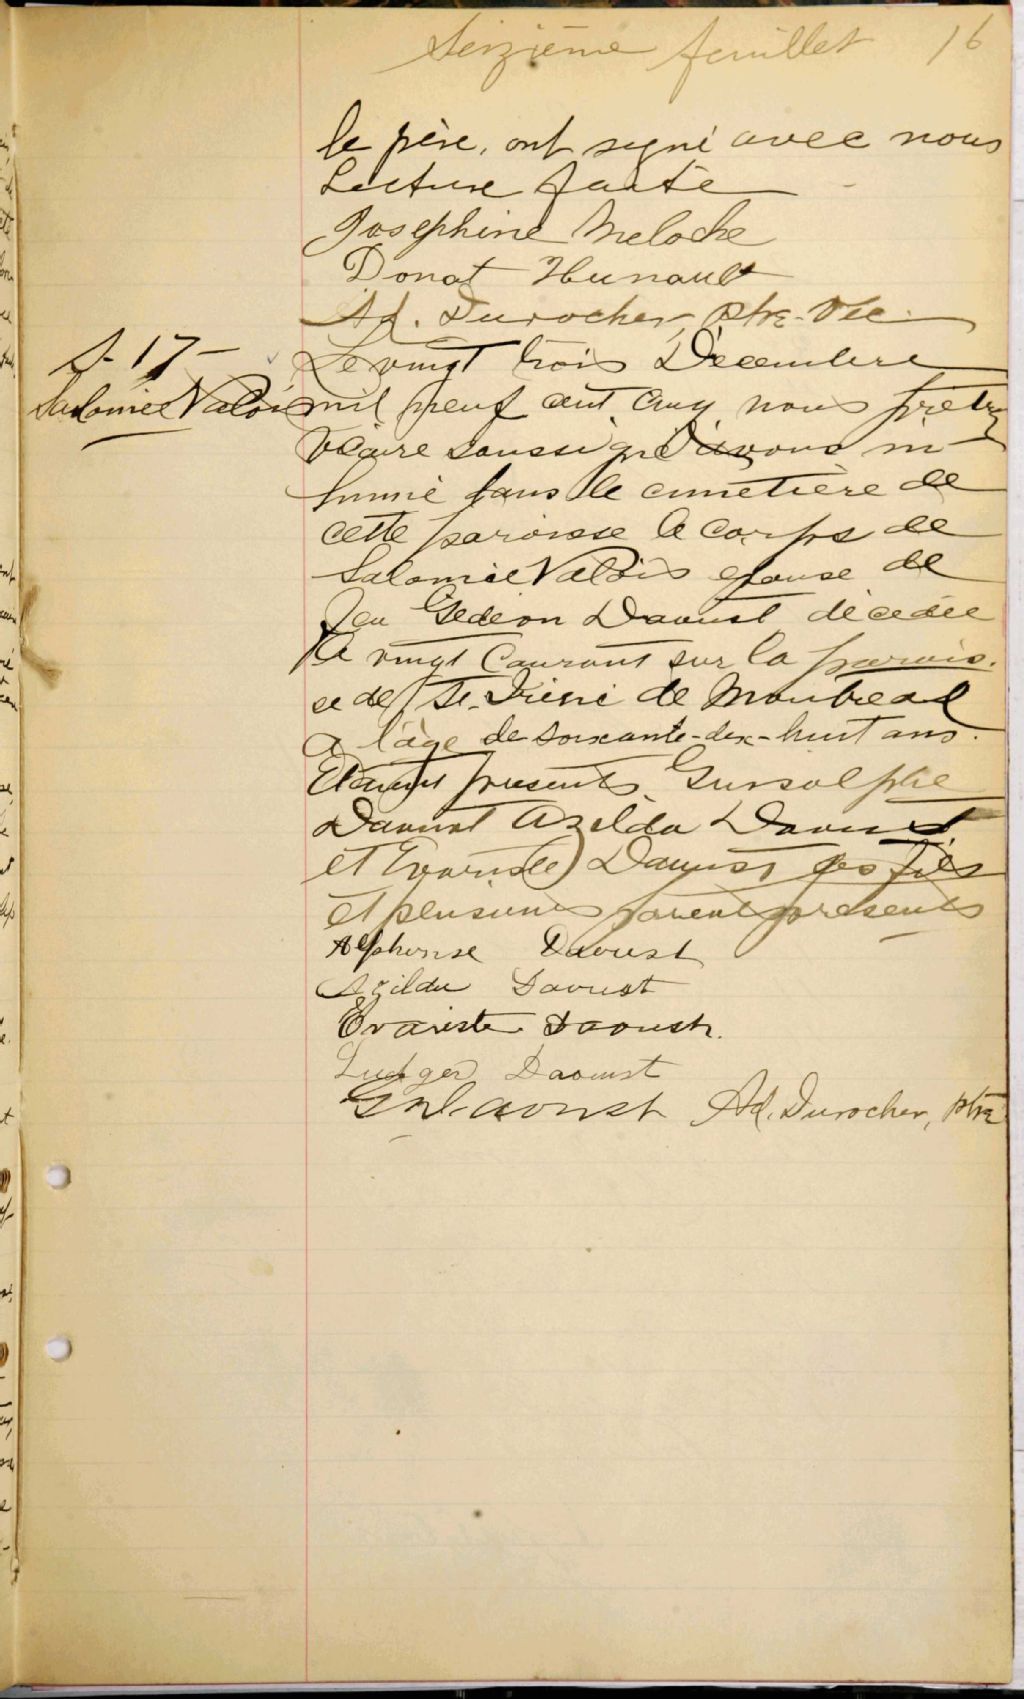 Seizième feuillet 16
le père, ont signé avec nous
Lecture faite
Josephine Meloche
Donat Hunault
Ad. Durocher, ptre-Vic.
S-17-
Salomée Valois
Le vingt trois Decembre
mil neuf cent cinq nous prêtre
vicaire soussigné avons in-
humé dans le cimetière de
cette paroisse le corps de
Salomée Valois epouse de
feu Gedeon Daoust décedée
le vingt Courant sur la parois-
se de St. Irené de Montreal
a l'âge de soixante-dix-huit ans.
Etaient presents
Daoust Azilda Daoust
et Evariste Daoust ses fils
et plusieurs parents presents
Alphonse Daoust
Azilda Daoust
Evariste Daoust.
Ludger Daoust
Ad. Durocher, ptre